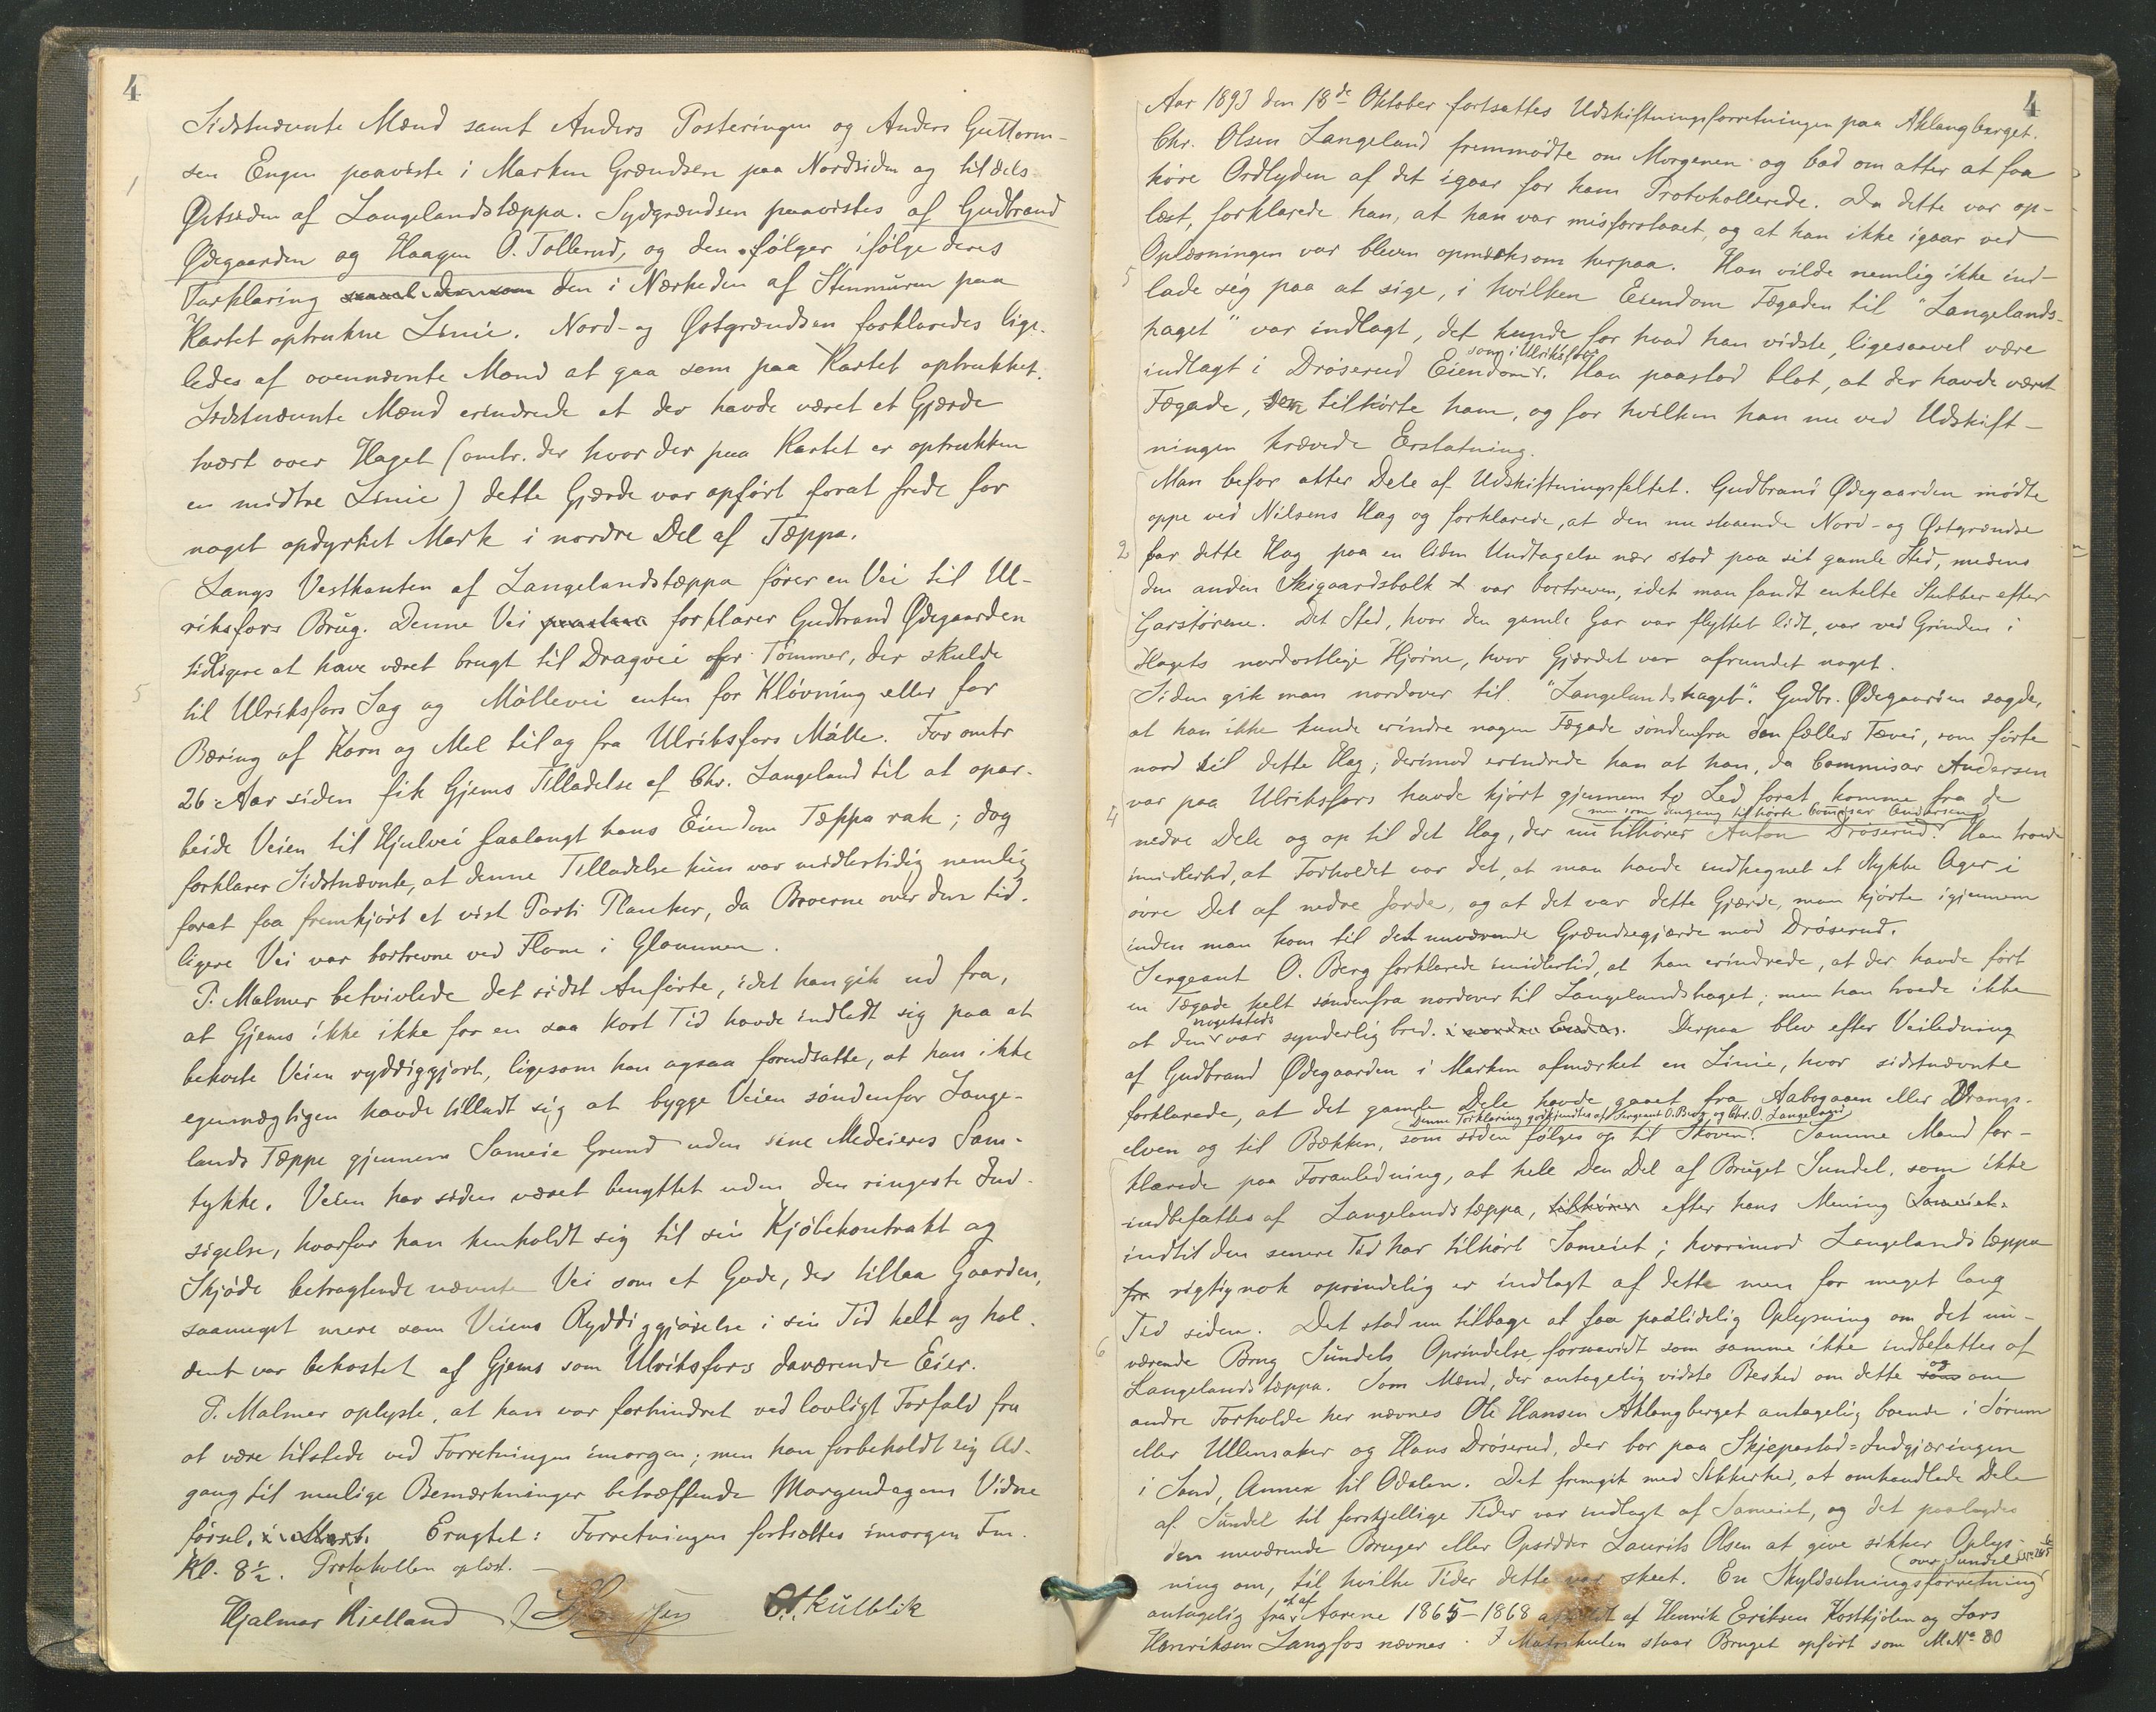 4
Sidstnævnte Mænd samt Anders Posteringen og Anders Guttorm-
sen Engen paaviste i Marken Grændsen paa Nordsiden og tildels
1
Østsiden af Langelandstæppa. Sydgrændsen paavistes af Gudbrand
Ødegaarden og Haagen O. Tollerud, og den følger ifølge deres
Forklaring den i Nærheden af Stenmuren paa
Kartet optrukne Linie. Nord- og Østgrændsen forklaredes lige-
ledes af ovennævnte Mænd at gaa som paa Kartet optrukket.
Sidstnævnte Mænd erindrede at der havde været et Gjærde
tvært over Haget (omtr. der hvor der paa Kartet er optrukken
en midtre Linie) dette Gjærde var opført forat frede for
noget opdyrket Mark i nordre Del af Tæppa.
Langs Vestkanten af Langelandstæppa fører en Vei til Ul-
riksfors Brug. Denne Vei forklarer Gudbrand Ødegaarden
tidligere at have været brugt til Dragvei for Tømmer, der skulde
5
til Ulriksfors Sag og Møllevei enten for Kløvning eller for
Bæring af Korn og Mel til og fra Ulriksfors Mølle. For omtr
26 Aar siden fik Gjems Tilladelse af Chr. Langeland til at opar-
beide Veien til Hjulvei saalangt hans Eiendom Tæppa rak; dog
forklarer Sidstnævnte, at denne Tilladelse kun var midlertidig nemlig
forat faa fremkjørt et vist Parti Planker, da Broerne over den tid-
ligere Vei var bortrevne ved Flom i Glommen.
P. Malmer betvivlede det sidst Anførte, idet han gik ud fra,
at Gjems ikke ikke for en saa kort Tid havde indledt sig paa at
bekoste Veien ryddiggjort, ligesom han ogsaa forudsatte, at han ikke
egenmægtigen havde tilladt sig at bygge Veien søndenfor Lange-
lands Tæppe gjennem Sameie Grund uden sine Medeieres Sam-
tykke. Veien har siden været benyttet uden den ringeste Ind-
sigelse, hvorfor han henholdt sig til sin Kjøbekontrakt og
Skjøde betragtende nævnte Vei som et Gode, der tillaa Gaarden,
saameget mere som Veiens Ryddiggjørelse i sin Tid helt og hol-
dent var bekostet af Gjems som Ulriksfors daværende Eier.
P. Malmer oplyste, at han var forhindret ved lovligt Forfald fra
at være tilstede ved Forretningen imorgen; men han forbeholdt sig Ad-
gang til mulige Bemærkninger betræffende Morgendagens Vidne
førsel. Eragtet: Forretningen fortsættes imorgen Fm.
Kl. 8½. Protokollen oplæst. —
Hjalmar Kielland O. Skulblik
4
Aar 1893 den 18de Oktober fortsattes Udskiftningsforretningen paa Aklangberget.
Chr. Olsen Langeland fremmødte om Morgenen og bad om atter at faa
høre Ordlyden af det igaar for ham Protokollerede. Da dette var op-
læst, forklarede han, at han var misforstaaet, og at han ikke igaar ved
Oplæsningen var bleven opmærksom herpaa. Han vilde nemlig ikke ind-
5
lade sig paa at sige, i hvilken Eiendom Fægaden til "Langelands-
haget" var indlagt, det kunde for hvad han vidste, ligesaavel være
som i Ulriksfors
indlagt i Drøserud Eiendom. Han paastod blot, at der havde været
Fægade, der tilhørte ham, og for hvilken han nu ved Udskift-
ningen krævede Erstatning.
Man befor atter Dele af Udskiftningsfeltet. Gudbrand Ødegaarden mødte
oppe ved Nilsens Hag og forklarede, at den nu staaende Nord- og Østgrændse
2
for dette Hag paa en liden Undtagelse nær stod paa sit gamle Sted, medens
den anden Skigaardsbolk var bortreven, idet man fandt enkelte Stubber efter
Garstørene. Det Sted, hvor den gamle Gar var flyttet lidt, var ved Grinden i
Hagets nordostlige Hjørne, hvor Gjærdet var afrundet noget.
Siden gik man nordover til "Langelandshaget". Gudbr. Ødegaarden sagde,
at han ikke kunde erindre nogen Fægade søndenfra den fælles Fævei, som førte
nord til dette Hag; derimod erindrede han at han, da Commisær Andersen
var paa Ulriksfors havde kjørt gjennem to Led forat komme fra de
4
men som dengang tilhørte Commisær Andersen
nedre Dele og op til det Hag, der nu tilhører Anton Drøserud. Han troede
imidlertid, at Forholdet var det, at man havde indhegnet et Stykke Ager i
øvre Del af nedre Jorde, og at det var dette Gjærde, man kjørte igjennem
inden man kom til det nuværende Grændsegjærde mod Drøserud.
Sergeant O. Berg forklarede imidlertid, at han erindrede, at der havde ført
en Fægade helt søndenfra nordover til Langelandshaget; men han troede ikke
nogetsteds
at den var synderlig bred. Derpaa blev efter Veiledning
af Gudbrand Ødegaarden i Marken afmærket en Linie, hvor sidstnævnte
forklarede, at det gamle Dele havde gaaet fra Aabogaaen eller Drangs-
Denne Forklaring godkjendtes af Sergeant O. Berg og Chr. O. Langeland
elven og til Bækken, som siden følges op til Skoven. Samme Mand for-
klarede paa Foranledning, at hele den Del af Bruget Sundel, som ikke
indbefattes af Langelandstæppa, efter hans Mening
indtil den senere Tid har tilhørt Sameiet; hvorimod Langelandstæppa
rigtignok oprindelig er indlagt af dette men for meget lang
Tid siden. Det stod nu tilbage at faa paalidelig Oplysning om det nu-
6
værende Brug Sundels Oprindelse, forsaavidt som samme ikke indbefattes af
og
Langelandstæppa. Som Mænd, der antagelig vidste Besked om dette om
andre Forholde her nævnes Ole Hansen Aklangberget antagelig boende i Sørum
eller Ullensaker og Hans Drøserud, der bor paa Skjepstad-Indgjæringen
i Sand, Annex til Odalen. Det fremgik med Sikkerhed, at omhandlede Dele
af Sundel til forskjellige Tider var indlagt af Sameiet, og det paalagdes
den nuværende Bruger eller Opsidder Laurits Olsen at give sikker Oplys-
over Sundel
ning om, til hvilke Tider dette var skeet. En Skyldsetningsforretning
antagelig fra Aarene 1865-1868 af Henrik Eriksen Kostkjølen og Lars
Henriksen Langfos nævnes. I Matrikulen staar Bruget opført som M.No 80